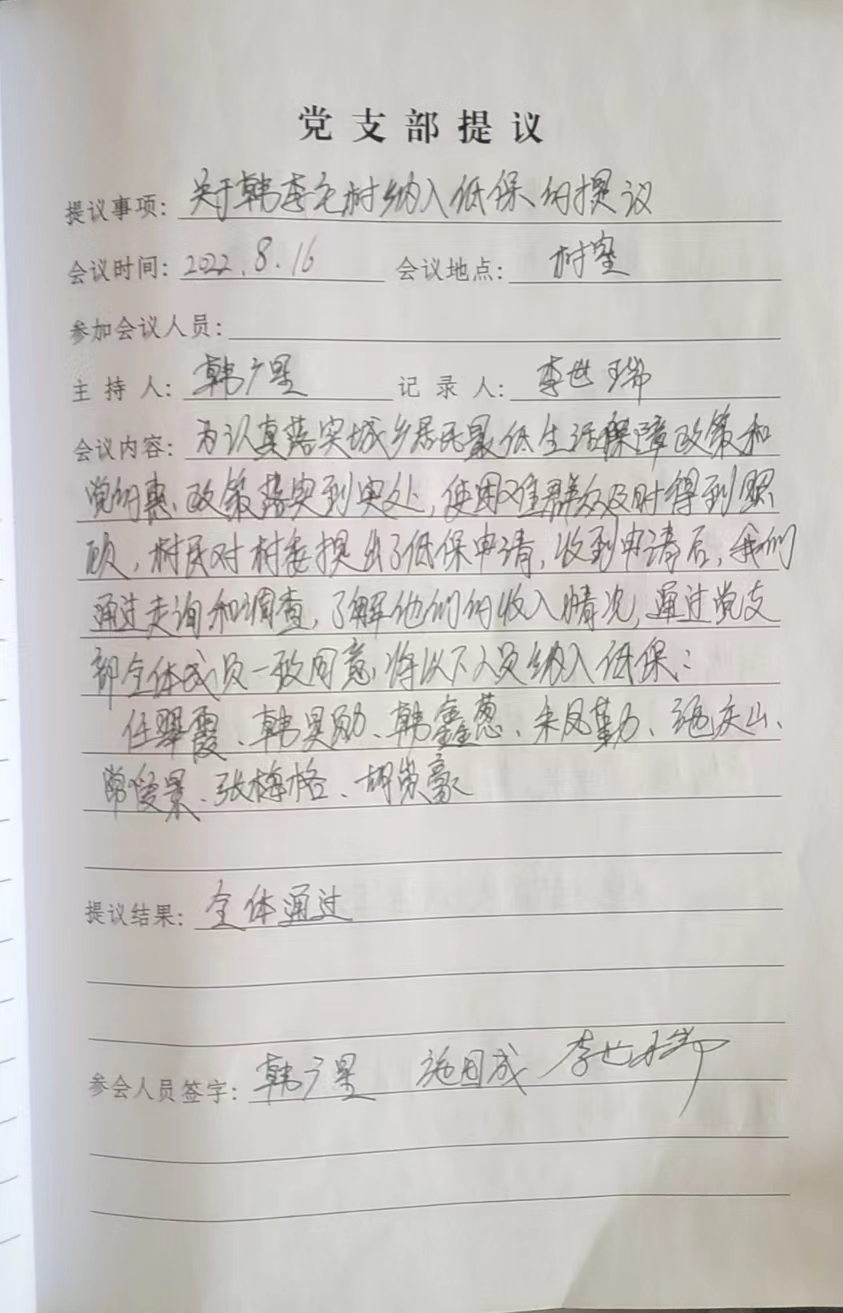 党支部提议
提议事项: 关于韩李毛村纳入低保的提议
会议时间: 2022.8.16 会议地点: 村室
参加会议人员:
主持人: 韩广星 记录人: 李世瑞
会议内容: 为认真落实城乡居民最低生活保障政策和
党的惠政策落实到实处,使困难群众及时得到照
顾,村民对村委提出了低保申请,收到申请后,我们
通过走询和调查,了解他们的收入情况,通过党支
部全体成员一致同意,将以下人员纳入低保:
任翠霞、韩昊勋、韩鑫葱、朱凤勤、施庆山、
常俊景、张梅格、胡岚豪
提议结果: 全体通过
参会人员签字: 韩广星 施国成 李世瑞